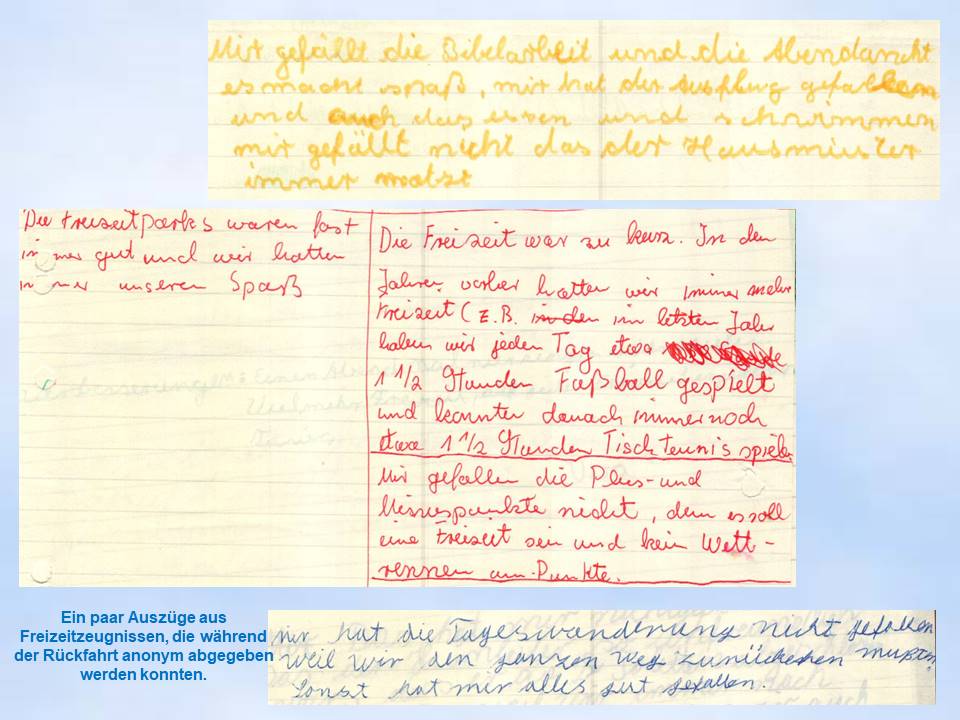 Mir gefällt die Bibelarbeit und die Abendandacht
es macht spaß, mir hat der Ausflug gefallen
und auch das essen und schwimmen
mir gefällt nicht das der Hausmiuster
immer motzt
Die Freizeitparks waren fast
immer gut und wir hatten
immer unseren Spaß
Die Freizeit war zu kurz. In den
Jahren vorher hatten wir immer mehr
Freizeit (z.B. in den im letzten Jahr
haben wir jeden Tag etwa
1 1/2 Stunden Fußball gespielt
und konnten danach immer noch
etwa 1 1/2 Stunden Tischtennis spielen
Mir gefallen die Plus- und
Minuspunkte nicht, denn es soll
eine Freizeit sein und kein Wett-
rennen um Punkte.
Ein paar Auszüge aus
Freizeitzeugnissen, die während
der Rückfahrt anonym abgegeben
werden konnten.
mir hat die Tageswanderung nicht gefallen
weil wir den ganzen weg zurückgehen mußten
Sonst hat mir alles gut gefallen.